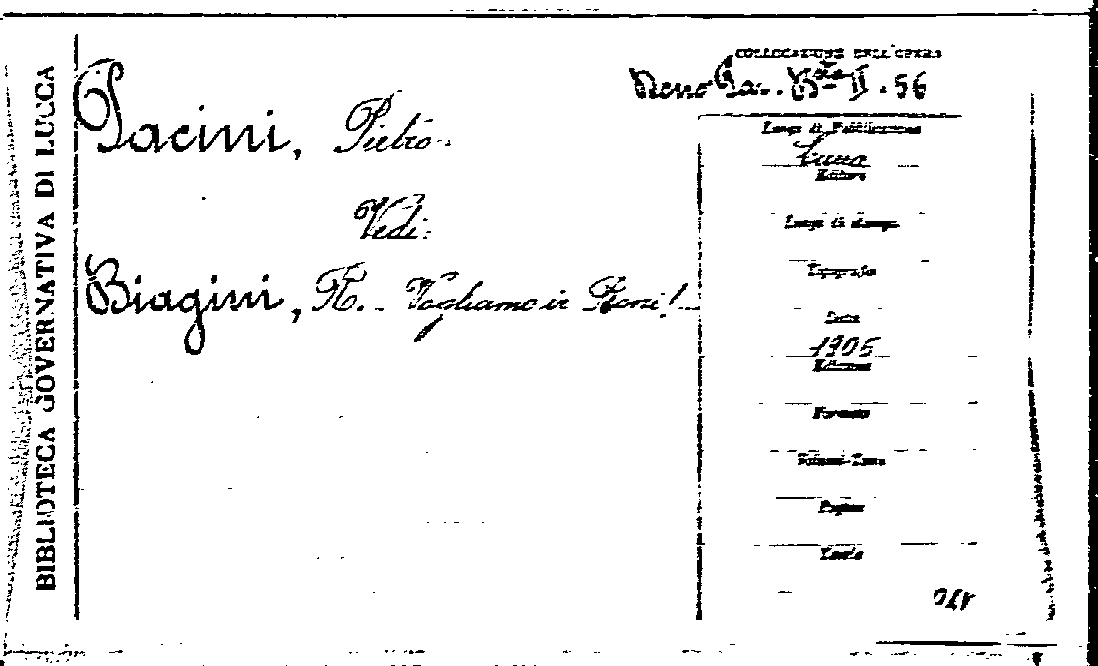 BIBLIOTECA GOVERNATIVA DI LUCCA
Pacini, Pietro.
Vedi:
Biagini, Vogliamo ir
COLLOCAZIONE DELL'OPERA
II. 56
Luogo di Pubblicazione
Editore
Luogo di stampa
Tipografia
Data
1905
Edizione
Formato
Volumi-Tomo
Pagine